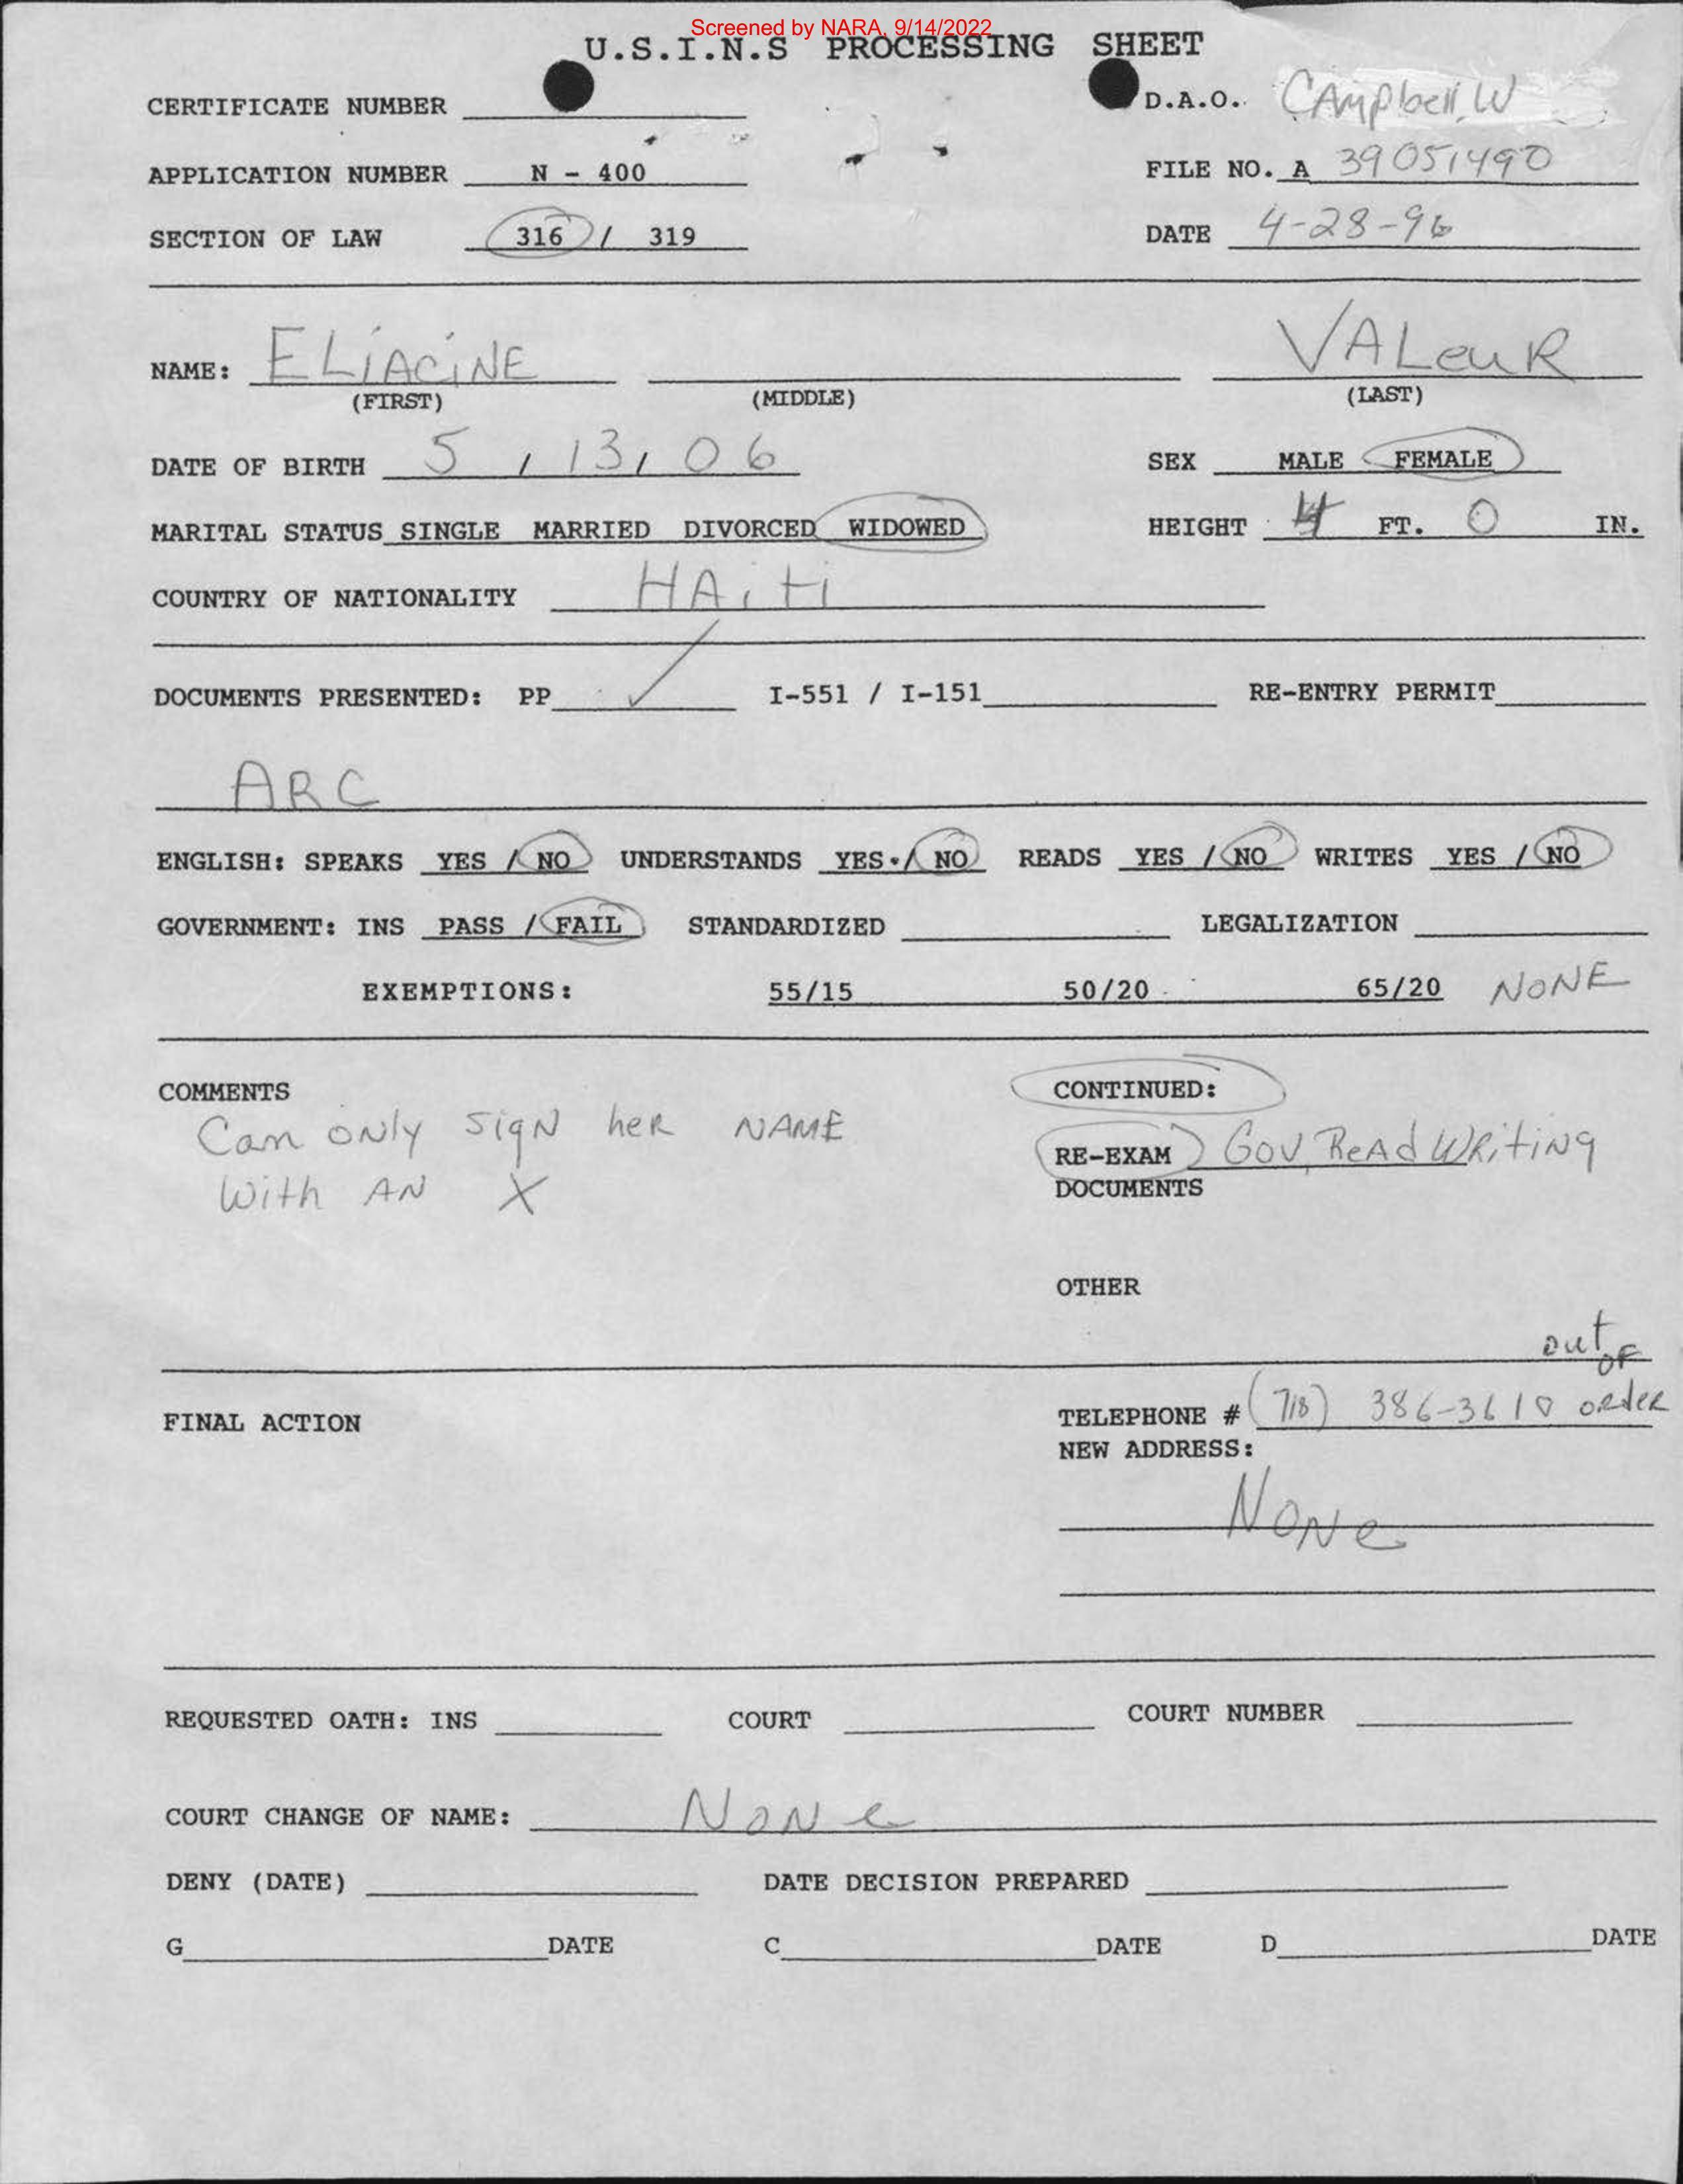 Screened by NARA, 9/14/2022
U.S.I.N.S PROCESSING SHEET
CERTIFICATE NUMBER D.A.O. CAmpbell, W
APPLICATION NUMBER N - 400 FILE NO. A 39051490
SECTION OF LAW 316 / 319 DATE 4-28-96
NAME: ELiACiNE VALeuR
(FIRST) (MIDDLE) (LAST)
DATE OF BIRTH 5 / 13 / 06 SEX MALE FEMALE
MARITAL STATUS SINGLE MARRIED DIVORCED WIDOWED HEIGHT 4 FT. 0 IN.
COUNTRY OF NATIONALITY HAiti
DOCUMENTS PRESENTED: PP ✓ I-551 / I-151 RE-ENTRY PERMIT
ARC
ENGLISH: SPEAKS YES / NO UNDERSTANDS YES / NO READS YES / NO WRITES YES / NO
GOVERNMENT: INS PASS / FAIL STANDARDIZED LEGALIZATION
EXEMPTIONS: 55/15 50/20 65/20 NONE
COMMENTS CONTINUED:
Can only sigN heR NAME
With AN X
RE-EXAM Gov, ReAd WRitiNg
DOCUMENTS
OTHER
out oF
FINAL ACTION TELEPHONE # (718) 386-3610 oRdeR
NEW ADDRESS:
NoNe
REQUESTED OATH: INS COURT COURT NUMBER
COURT CHANGE OF NAME: NoNe
DENY (DATE) DATE DECISION PREPARED
G DATE C DATE D DATE